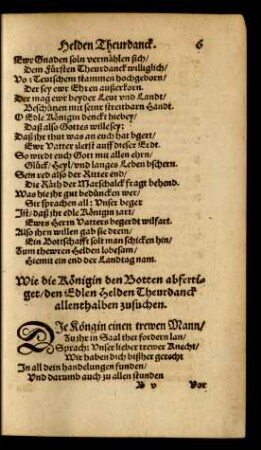 Helden Theurdanck. 6
Ewr Gnaden soln vermählen sich/
Dem Fürsten Theurdanck williglich/
Vo&#x303; Teutschem stammen hochgeborn/
Der sey ewr Ehren außerkorn.
Der mag ewr beyder Leut vnd Landt/
Beschützen mit seiner streitbarn Handt.
O Edle Königin denckt hiebey/
Daß also Gottes wille sey:
Daß jhr thut was an euch hat bgert/
Ewr Vatter zletst auff dieser Erdt.
So wirdt euch Gott mit allen ehrn/
Glück/Heyl/vnd langes Leben bschern.
Sein red also der Ritter end/
Die Räth der Marschalck fragt behend.
Was sie jhr gut bedüncken wer/
Sie sprachen all: Vnser beger
Ist/daß jhr edle Königin zart/
Ewrs Herrn Vatters begerdt wilfart.
Also jhrn willen gab sie drein/
Ein Bottschafft solt man schicken hin/
Zum thewren Helden lobesam/
Hiemit ein end der Landtag nam.
Wie die Königin den Botten abferti-
get/den Edlen Helden Theurdanck
allenthalben zusuchen.
DJe Köngin einen trewen Mann/
Zu jhr in Saal thet fordern lan/
Sprach: Vnser lieber trewer Knecht/
Wir haben dich bißher gerecht
In all dein handelungen funden/
Vnd darumb auch zu allen stunden
B v Vor